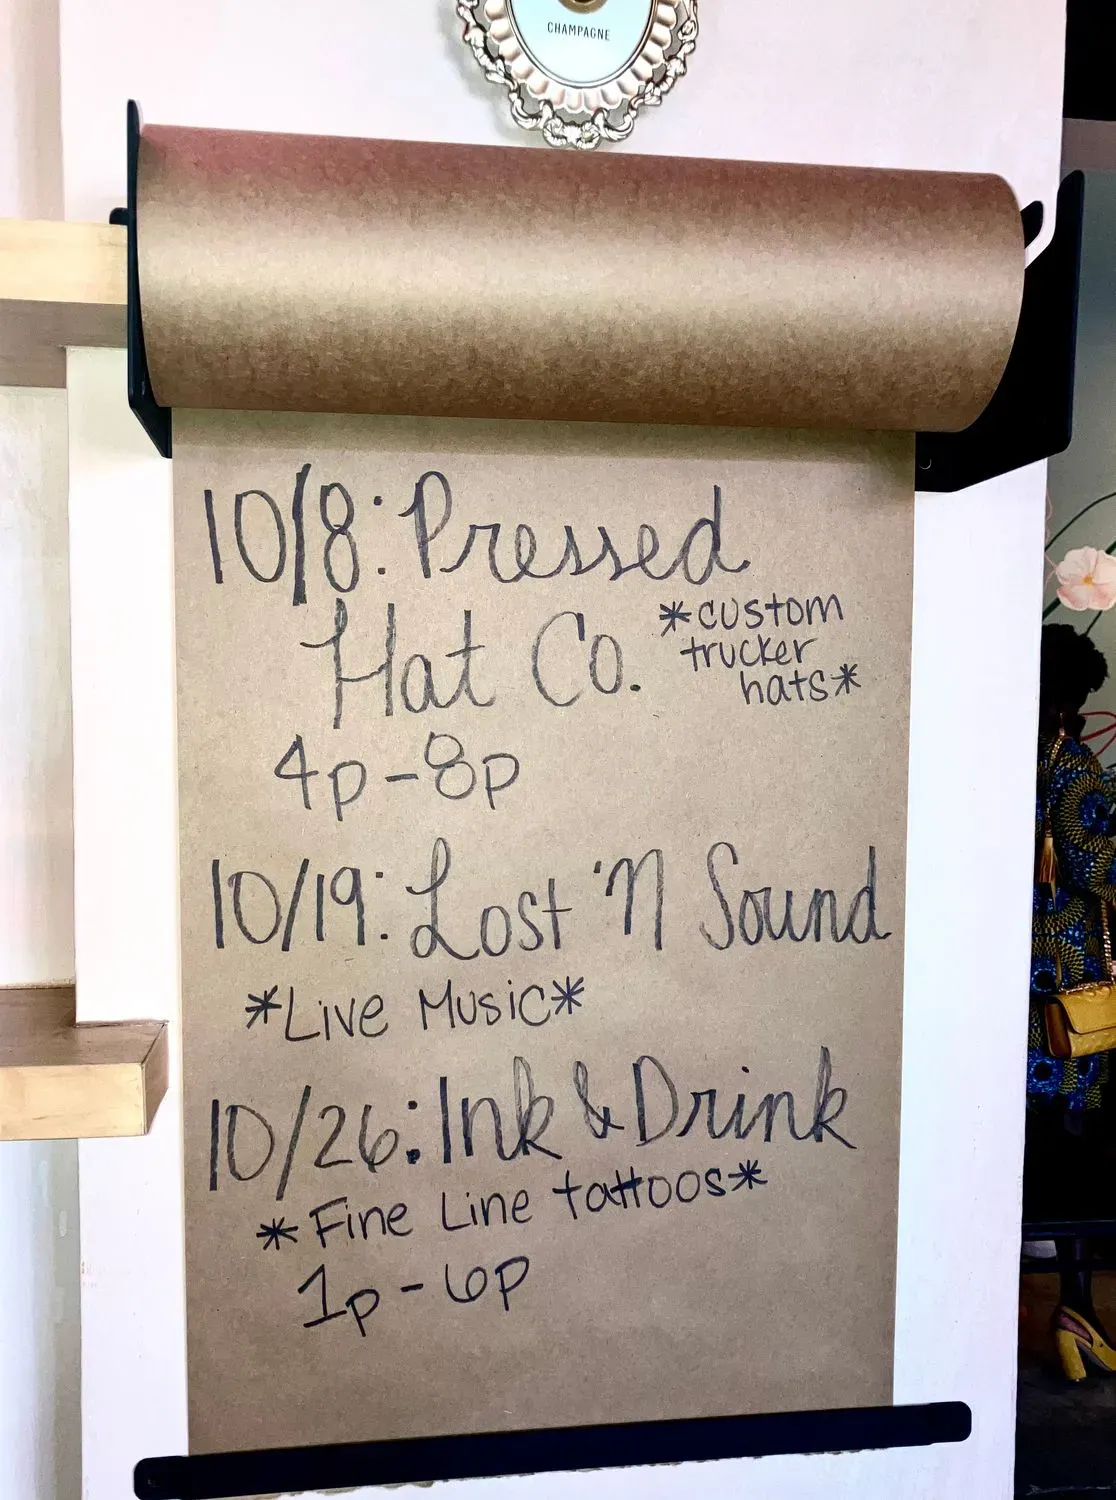 CHAMPAGNE
10/8: Pressed
Hat Co. *custom
trucker
hats*
4p-8p
10/19: Lost 'N Sound
*Live Music*
10/26: Ink & Drink
*Fine Line tattoos*
1p-6p